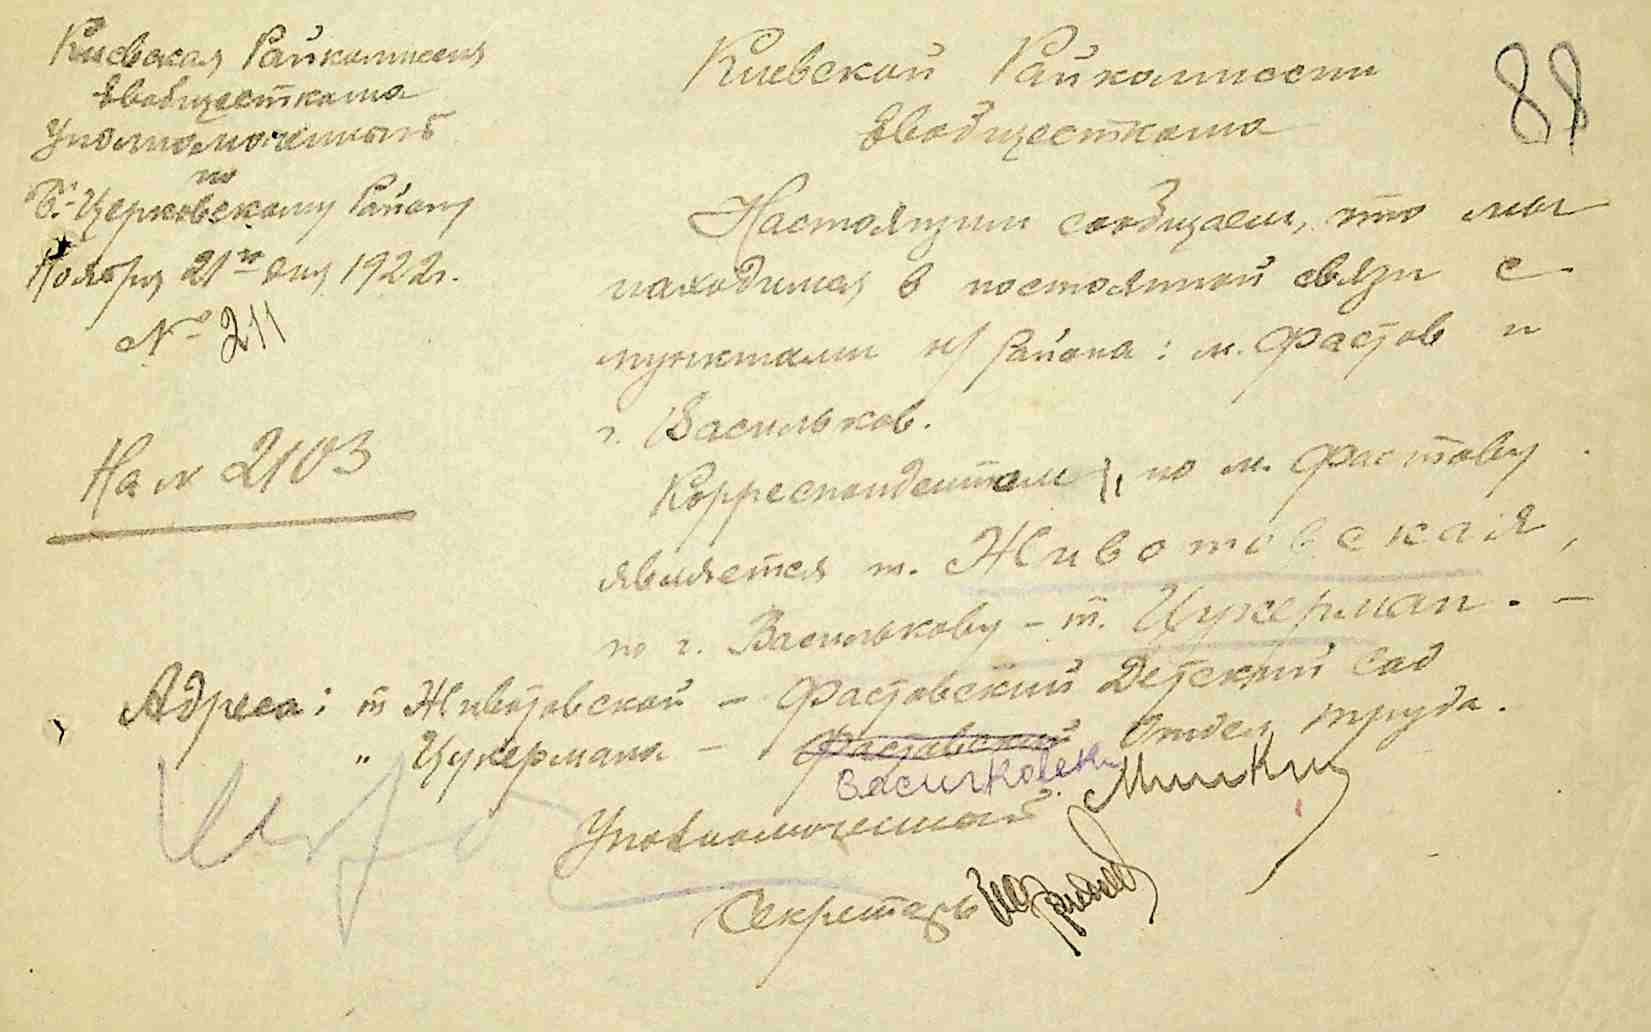 88
Киевская Райкомиссия
Евобщесткома
Уполномоченный
по
Б.-Церковскому Району
Ноября 21го дня 1922г.
№ 211
На № 2103
Киевской Райкомиссии
Евобщесткома
Настоящим сообщаем, что мы
находимся в постоянной связи с
пунктами н/ Района: м. Фастов и
г. Васильков.
Корреспондентом, по м. Фастову
является т. Животовская,
по г. Василькову – т. Цукерман. –
Адреса: т. Животовской – Фастовский Детский сад
" Цукермана – Фастовский Отдел труда.
Васильковск.
Уполномоченный Минкин
Секретарь